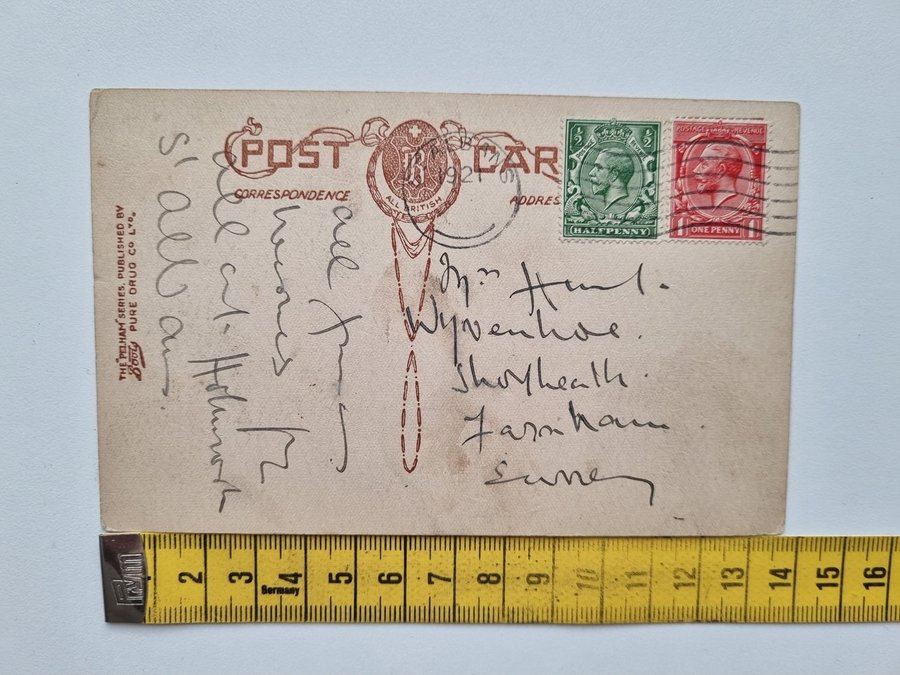 POST CAR
CORRESPONDENCE
ADDRES
ALL BRITISH
1921
½ ½
HALFPENNY
POSTAGE REVENUE
ONE PENNY
THE "PELHAM" SERIES. PUBLISHED BY
Boots PURE DRUG CO LTD.
all from
for
call at Holmwood
St Albans
Mrs Hunt.
Wyvenhoe.
Shortheath.
Farnham.
Surrey
2 3 4 5 6 7 8 9 10 11 12 13 14 15 16
Germany